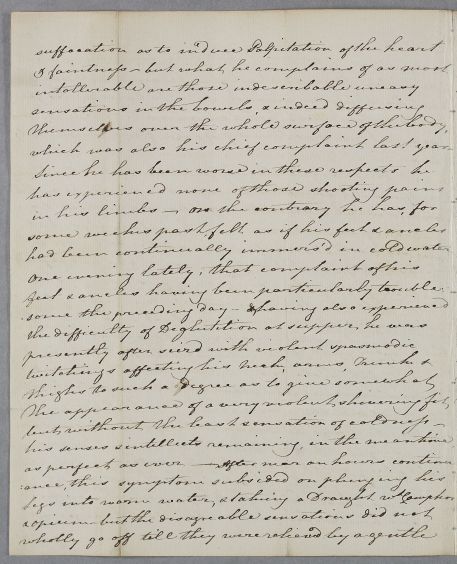 suffocation as to induce Palpitation of the heart
& faintness – but what he complains of as most
intollerable are those indescribable uneasy
sensations in the bowels, & indeed diffusing
themselves over the whole surface of the body,
which was also his chief complaint last year
Since he has been worse in these respects he
has experienced none of those shooting pains
in his limbs – on the contrary he has, for
some weeks past, felt as if his feet & ancles
had been continually immers'd in cold water
One evening lately, that complaint of his
feet & ancles having been particularly trouble-
some the preceding day – & having also experienced
the difficulty of Deglutition at supper, he was
presently after seiz'd with violent spasmodic
twitchings affecting his neck, arms, Trunk &
thighs to such a degree as to give somewhat
the appearance of a very violent shivering fit,
but, without the least sensation of coldness –
his senses & intellects remaining, in the meantime
as perfect as ever. – After near an hours continu-
ance, this symptom subsided on plunging his
legs into warm water, & taking a Draught wth. Camphor
& opium – but the disagreable sensations did not
wholly go off till they were reliev'd by a gentle